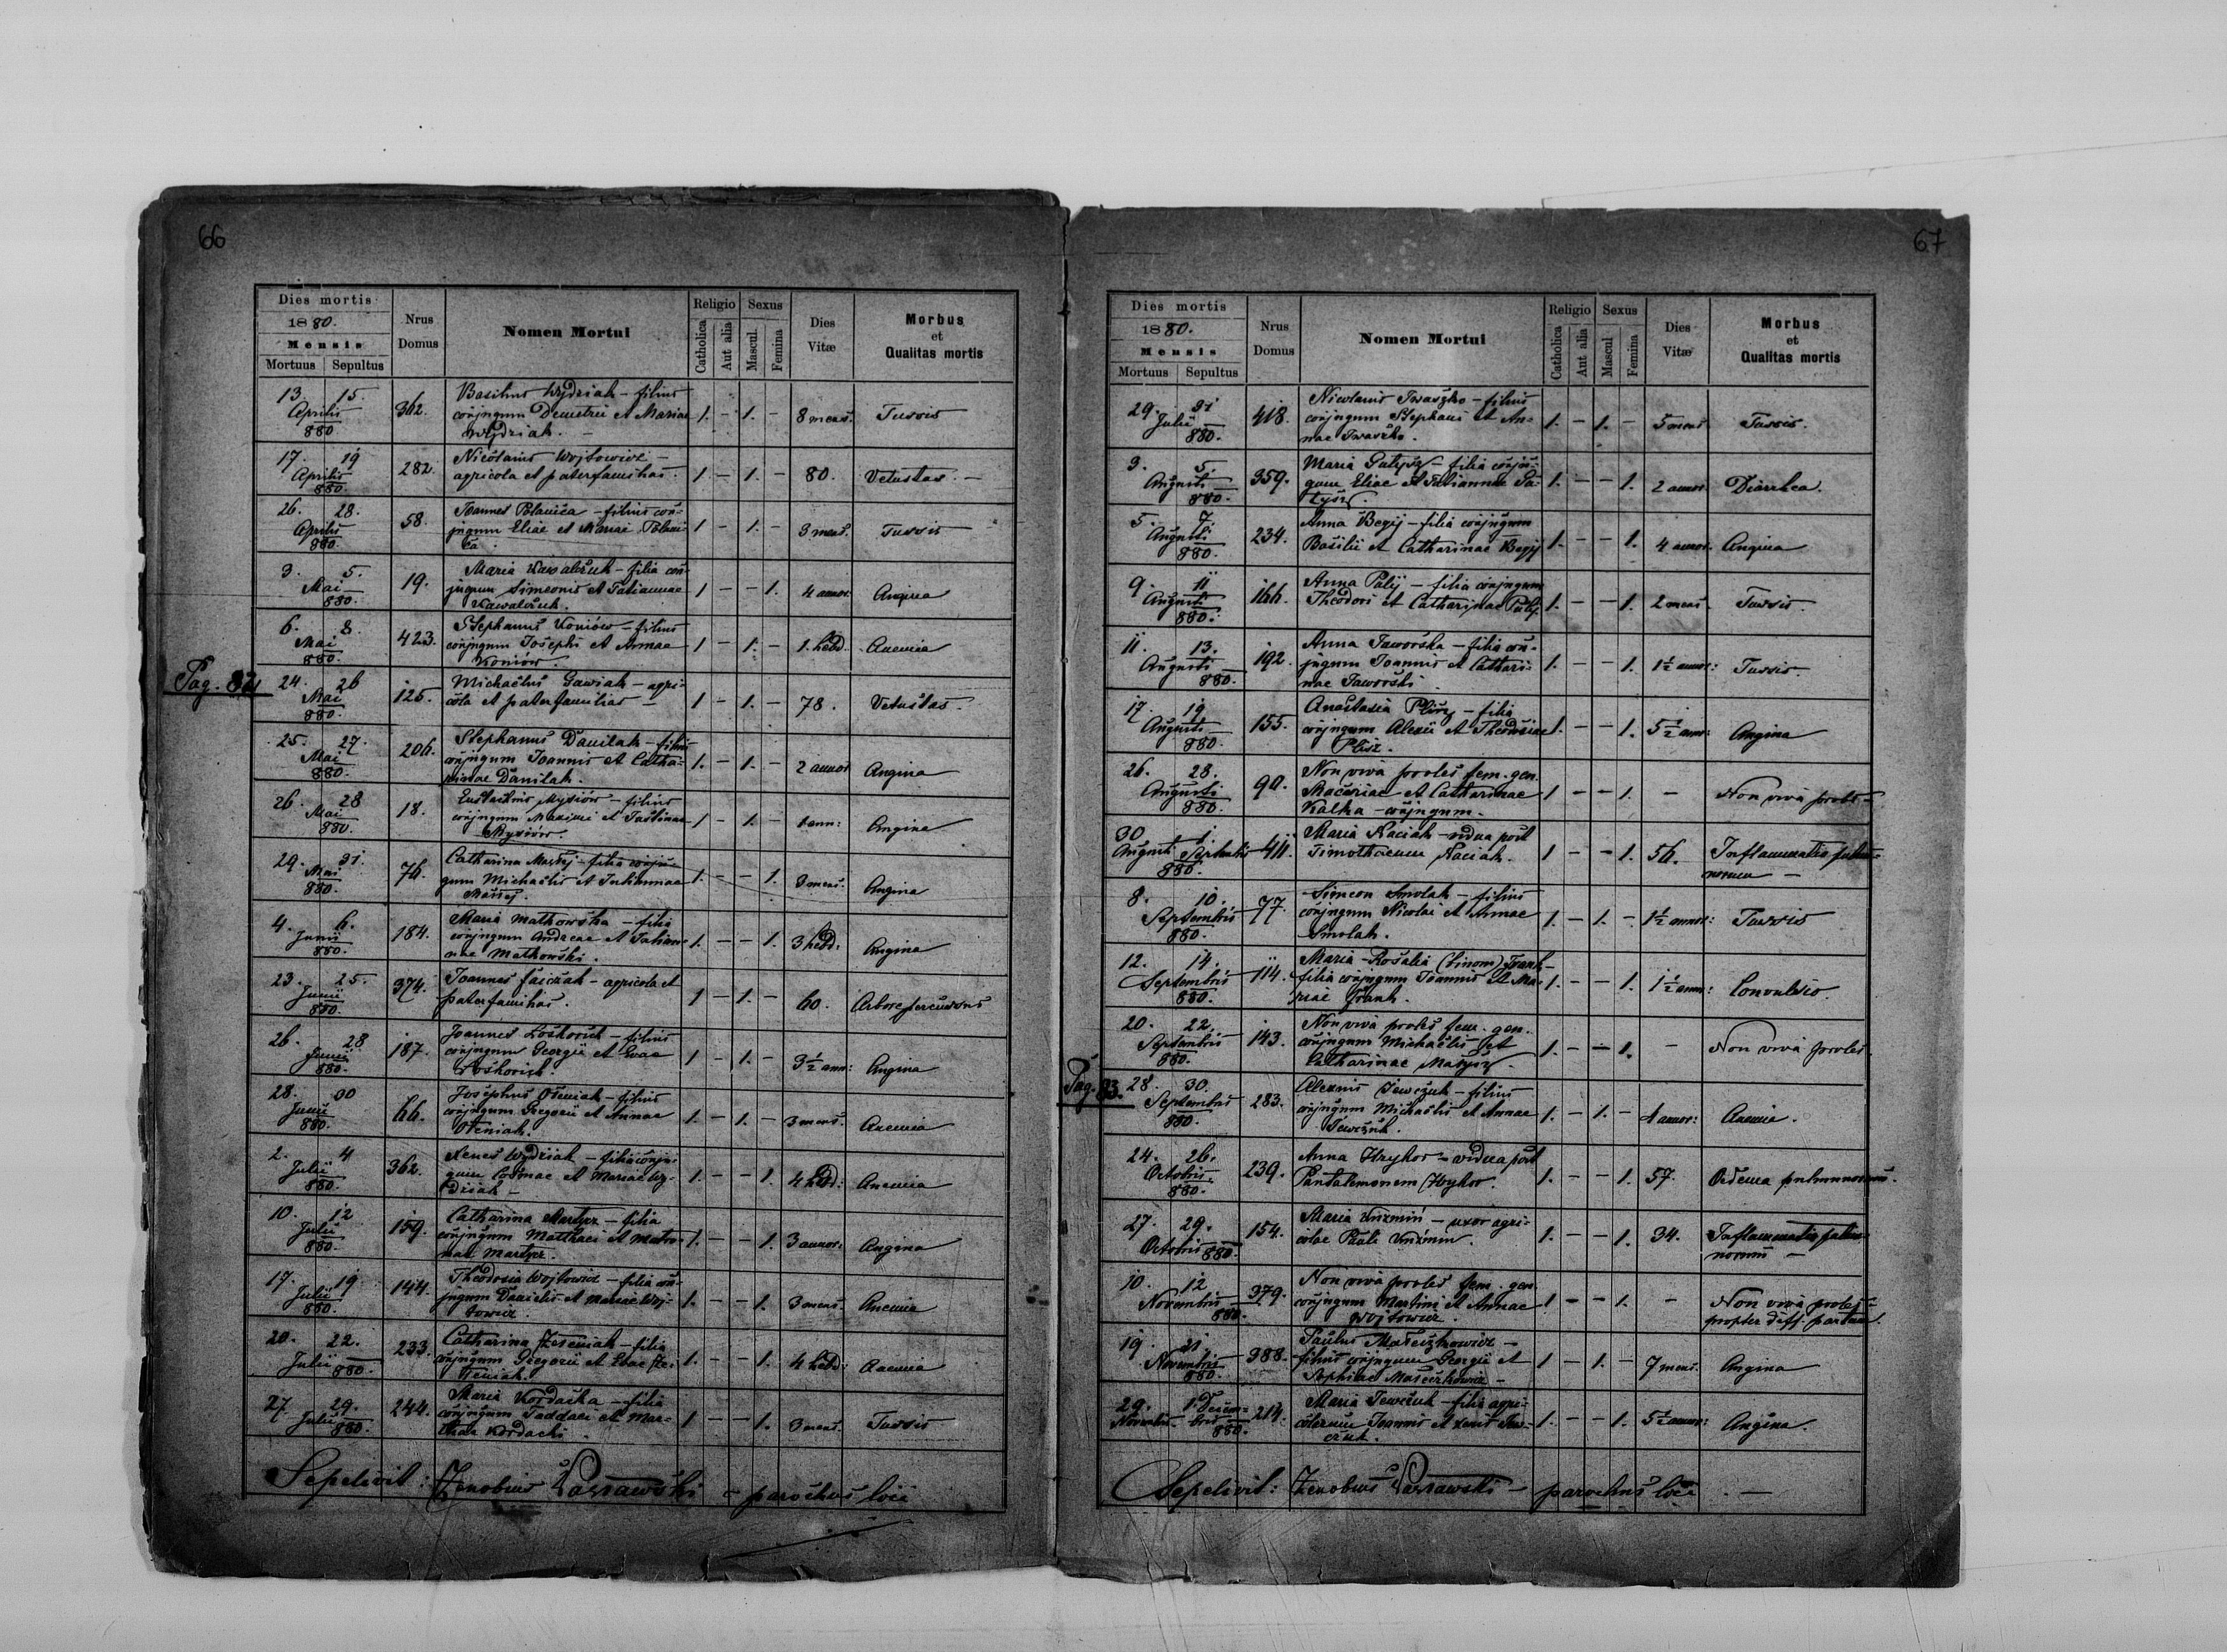 66
Dies mortis
1880.
Mensis
Mortuus Sepultus
Nrus Domus
Nomen Mortui
Religio
Catholica
Aut alia
Sexus
Mascul.
Femina
Dies Vitæ
Morbus
et
Qualitas mortis
13. 15.
Aprilis
880
362.
Basilius Wydziak – filius
conjugum Demetrii et Mariae
Wydziak. –
1. – 1. – 8 mens. Tussis
17. 19
Aprilis
880.
282.
Nicolaus Wojtowicz –
agricola et paterfamilias.
1. – 1. – 80. Vetustas. –
26. 28.
Aprilis
880.
58.
Joannes Polanica – filius con-
jugum Eliae et Mariae Polani-
ca.
1 – 1. – 3 mens. Tussis
3. 5.
Mai
880.
19.
Maria Kawalczuk – filia con-
jugum Simeonis et Tatiannae
Kawalczuk.
1 – – 1. 4 annor. Angina
6. 8.
Mai
880.
423.
Stephanus Koniów – filius
conjugum Josephi et Annae
Koniów.
1 – 1. – 1. hebd. Anemia
Pag. 82
24. 26
Mai
880.
125.
Michaelus Gawiak – agri-
cola et paterfamilias –
1 – 1. – 78. Vetustas.
25. 27.
Mai
880.
206.
Stephanus Danilak – filius
conjugum Joannis et Catha-
rinae Danilak.
1. – 1. – 2 annor Angina
26. 28
Mai
880.
18.
Eustachius Mysiów – filius
conjugum Maximi et
Mysiów.
1 – 1. – 1 ann: Angina
29. 31.
Mai
880.
76.
Catharina – filia conju-
gum Michaelis et Juliannae
1. – – 1. 3 mens. Angina
4. 6.
Junii
880.
184.
Maria Matkowska – filia
conjugum Andreae et Tatian-
nae Matkowski.
1. – – 1. 3 hebd: Angina
23. 25.
Junii
880.
374.
Joannes – agricola et
paterfamilias.
1 – 1. – 60. Arbore percussus
26. 28
Junii
880.
187.
Joannes – filius
conjugum Georgii et Evae
1 – 1. – 3½ ann: Angina
28. 30
Junii
880.
66.
Josephus – filius
conjugum Gregorii et Annae
1. – 1. – 3 mens. Anemia
2. 4
Julii
880.
362.
Xenes Wydziak – filia conju-
gum Cosmae et Mariae Wy-
dziak –
1. – – 1. 4 hebd: Anemia
10. 12
Julii
880.
159.
Catharina Martysz – filia
conjugum Matthaei et Matro-
nae Martysz.
1. – – 1. 3 annor: Angina
17. 19
Julii
880.
144.
Theodosia Wojtowicz – filia con-
jugum Danielis et Mariae Woj-
towicz.
1. – – 1. 3 mens. Anemia
20. 22.
Julii
880.
233.
Catharina – filia
conjugum Gregorii et
1. – – 1. 4 hebd: Anemia
27. 29.
Julii
880.
244.
Maria Kordacka – filia
conjugum Taddaei et Mar-
thae Kordacki.
1 – – 1. 3 mens. Tussis
Sepelivit: Zenobius – parochus loci
67
Dies mortis
1880.
Mensis
Mortuus Sepultus
Nrus Domus
Nomen Mortui
Religio
Catholica
Aut alia
Sexus
Mascul
Femina
Dies Vitæ
Morbus
et
Qualitas mortis
29. 31
Julii
880.
418.
Nicolaus Iwaszko – filius
conjugum Stephani et An-
nae Iwaszko.
1. – 1. – 5 mens Tussis.
3. 5.
Augusti
880.
359.
Maria – filia conju-
gum Eliae et Tatiannae
1. – – 1. 2 annor. Diarrhea.
5. 7.
Augusti
880.
234.
Anna Begij – filia conjugum
Basilii et Catharinae Begij
1. – – 1. 4 annor. Angina
9. 11
Augusti
880.
166.
Anna Palij – filia conjugum
Theodori et Catharinae Palij.
1. – – 1. 2 mens. Tussis.
11. 13.
Augusti
880.
192.
Anna Jaworska – filia con-
jugum Joannis et Cathari-
nae Jaworski
1. – – 1. 1½ annor: Tussis.
17. 19
Augusti
880.
155.
Anastasia Plisz – filia
conjugum Alexii et Theodosiae
Plisz.
1. – – 1. 5½ annor: Angina
26. 28.
Augusti
880.
90.
Non viva proles fem. gen.
Macariae et Catharinae
Kalka – conjugum.
1 – – 1. – Non viva proles –
30 1.
Augusti Septembris
880.
411.
Maria Kaciak – vidua post
Timothaeum Kaciak.
1 – – 1. 56. Inflammatio pulmo-
norum –
8. 10.
Septembris
880.
77.
Simeon Smolak – filius
conjugum Nicolai et Annae
Smolak.
1. – 1. – 1½ annor: Tussis
12. 14.
Septembris
880.
114.
Maria-Rosalia (binom) Frank –
filia conjugum Joannis et Ma-
riae Frank.
1. – – 1. 1½ ann: Convulsio.
20. 22.
Septembris
880.
143.
Non viva proles fem. gen.
conjugum Michaelis et
Catharinae
1. – – 1. – Non viva proles.
Pag. 83.
28. 30.
Septembris
880.
283.
Alexius Iewczuk – filius
conjugum Michaelis et Annae
Iewczuk.
1. – 1. – 4 annor: Anemia.
24. 26.
Octobris
880.
239.
Anna Hrykor – vidua post
Pantalemonem Hrykor.
1. – – 1. 57. Oedema pulmonorum.
27. 29.
Octobris
880.
154.
Maria Kuzmin – uxor agri-
colae Pauli Kuzmin.
1. – – 1. 34. Inflammatio pulmo-
norum –
10. 12
Novembris
880.
379.
Non viva proles fem. gen.
conjugum Martini et Annae
Wojtowicz.
1 – – 1. – Non viva proles
propter diff. partum.
19. 21.
Novembris
880.
388.
Paulus – 
filius conjugum Georgii et
Sophiae
1 – 1. – 7 mens. Angina
29. 1. Decem-
Novembris bris
880.
214.
Maria Iewczuk – filia agri-
colarum Joannis et Iew-
czuk.
1. – – 1. 5½ annor: Angina.
Sepelivit: Zenobius – parochus loci . –